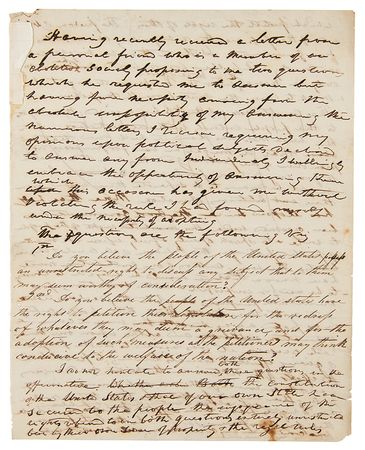 Having recently received a letter from
a personal friend who is a member of an
abolition Society proposing to me two questions
which he requested me to answer but
having from necessity arising from the
absolute impossibility of my answering the
numerous letters I receive requiring my
opinions upon political subjects declined
to answer any from Individuals I willingly
embrace the opportunity of answering them
which this occasion has given me without
violating the rule I
under the necessity of adopting
The questions are the following Viz
1st
Do you believe the people of the United States possess
an unrestricted right to discuss any subject that to them
may seem worthy of consideration?
2nd Do you believe the people of the United States have
the right to petition their for the redress
of whatever they may deem a grievance and for the
adoption of such measures as the petitioners may think
conducive to the welfare of the nation?
I do not hesitate to answer both these questions in the
affirmative the Constitution
of the United States & that of our own State has
secured to the people the enjoyment of the
rights in both questions unrestricted
but by their own sense of propriety & the